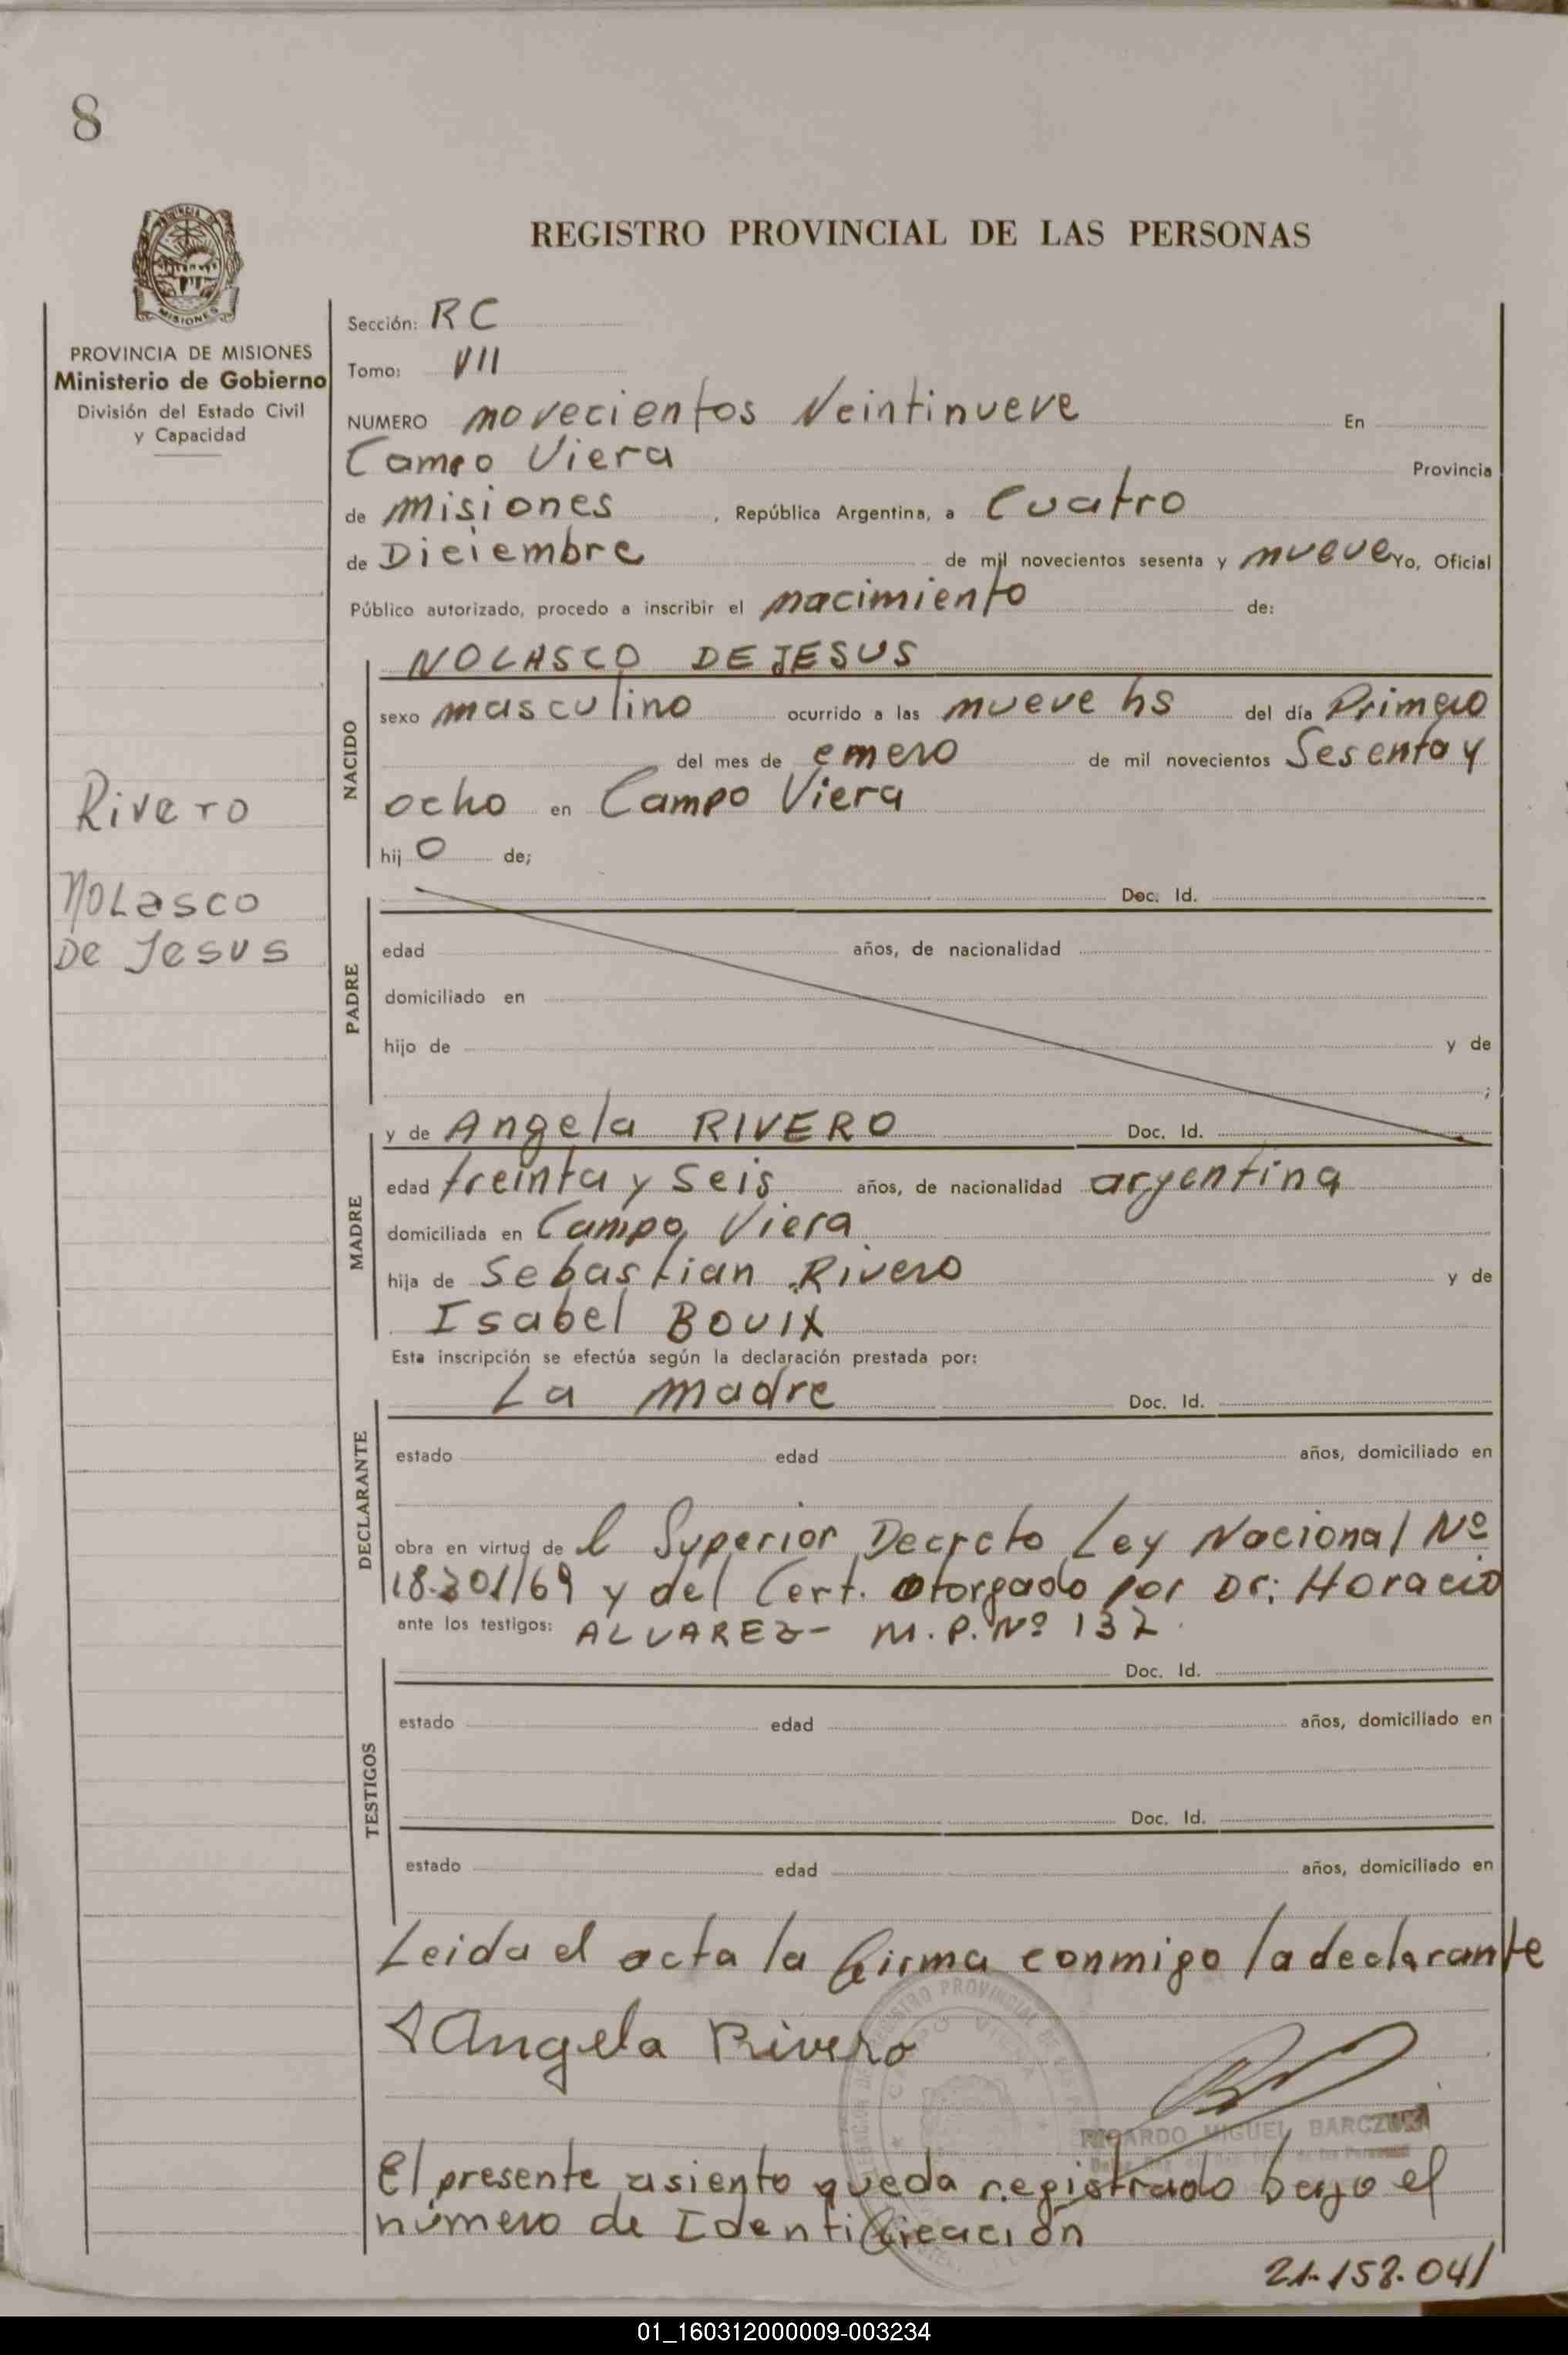 8
REGISTRO PROVINCIAL DE LAS PERSONAS
MISIONES
PROVINCIA DE MISIONES
Ministerio de Gobierno
División del Estado Civil
y Capacidad
Rivero
Nolasco
De Jesus
Sección: RC
Tomo: VII
NUMERO novecientos Veintinueve En
Campo Viera Provincia
de Misiones , República Argentina, a Cuatro
de Diciembre de mil novecientos sesenta y nueve Yo, Oficial
Público autorizado, procedo a inscribir el nacimiento de:
NACIDO
NOLASCO DE JESUS
sexo masculino ocurrido a las nueve hs del día Primero
del mes de enero de mil novecientos Sesenta y
ocho en Campo Viera
hij o de;
PADRE
Doc. Id.
edad años, de nacionalidad
domiciliado en
hijo de y de
;
MADRE
y de Angela RIVERO Doc. Id.
edad treinta y Seis años, de nacionalidad argentina
domiciliada en Campo Viera
hija de Sebastian Rivero y de
Isabel BOUIX
Esta inscripción se efectúa según la declaración prestada por:
DECLARANTE
La madre Doc. Id.
estado edad años, domiciliado en
obra en virtud de l Superior Decreto Ley Nacional Nº
18.301/69 y del Cert. otorgado por Dr: Horacio
ante los testigos: ALVAREZ- M.P. Nº 132
TESTIGOS
Doc. Id.
estado edad años, domiciliado en
Doc. Id.
estado edad años, domiciliado en
Leida el acta la firma conmigo la declarante
Angela Rivero
REGISTRO PROVINCIAL DE LAS
CAMPO VIERA
RICARDO MIGUEL
El presente asiento queda registrado bajo el
número de Identificación
21.158.041
01_160312000009-003234